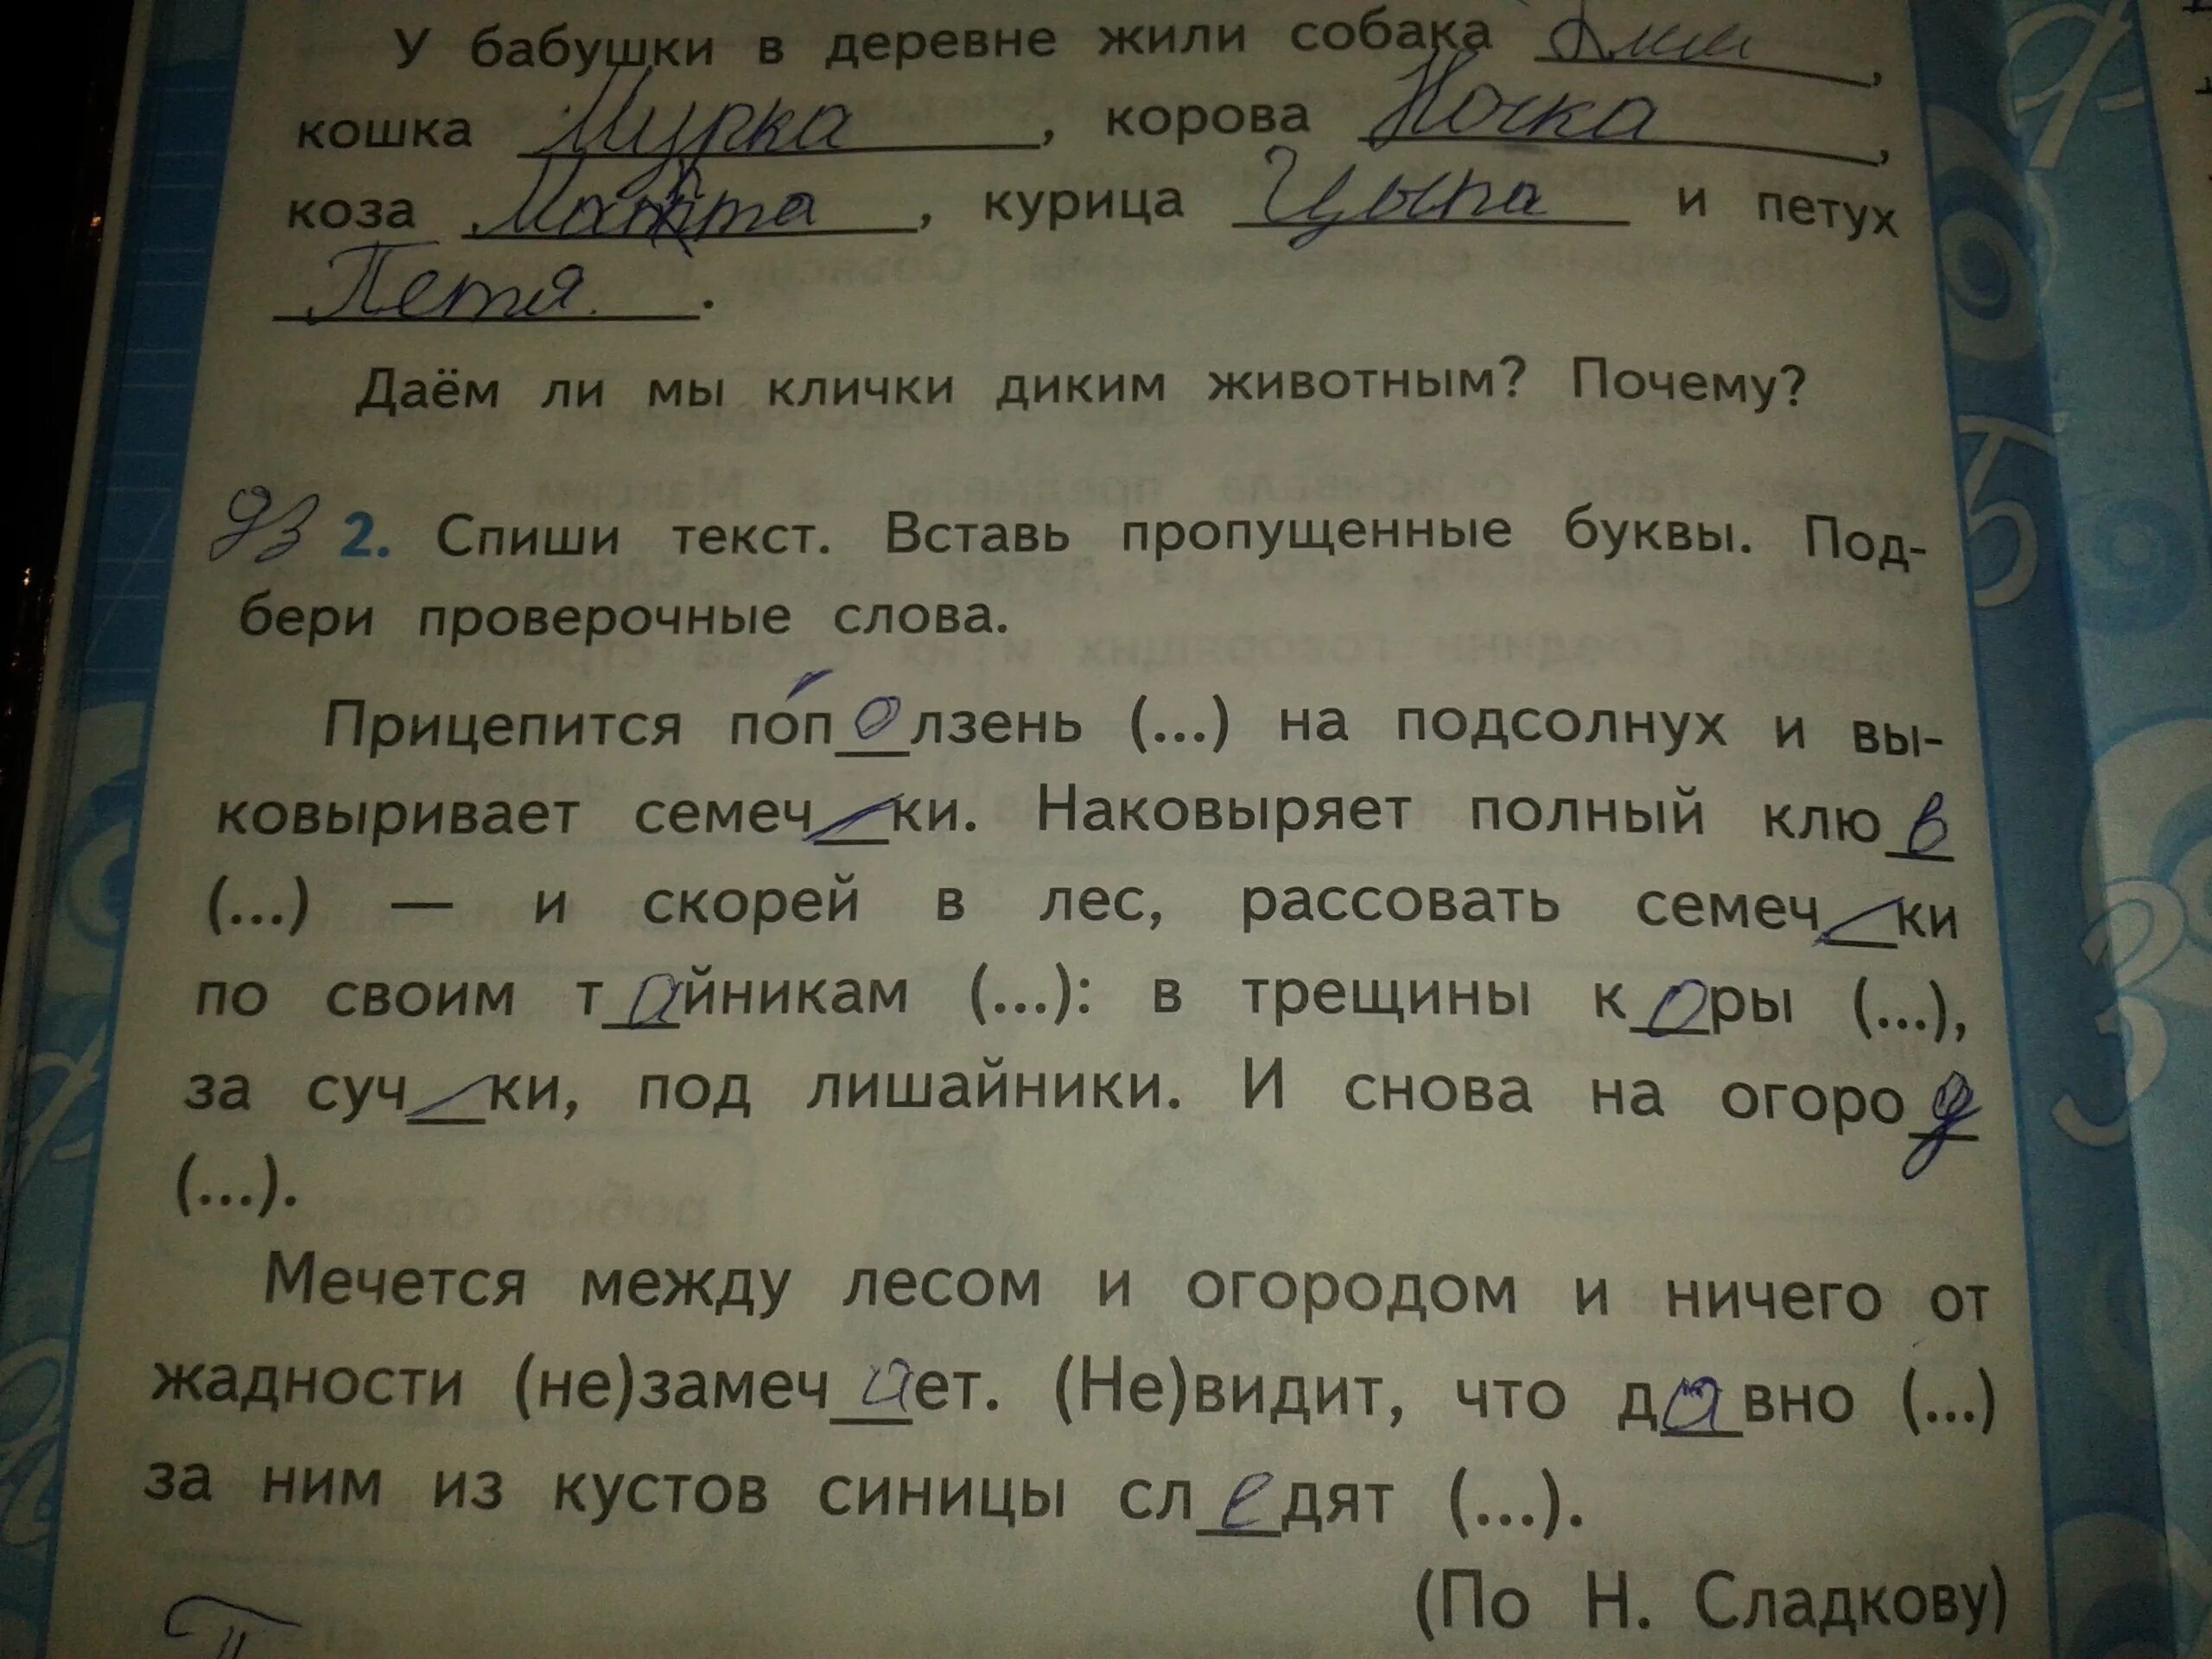 У бабушки в деревне жили собака ,
кошка Мурка , корова Ночка ,
коза Марта , курица Цыпа и петух
Петя. .
Даём ли мы клички диким животным? Почему?
дз 2. Спиши текст. Вставь пропущенные буквы. Под-
бери проверочные слова.
Прицепится по́ползень (...) на подсолнух и вы-
ковыривает семеч_ки. Наковыряет полный клюв
(...) — и скорей в лес, рассовать семеч_ки
по своим тайникам (...): в трещины коры (...),
за суч_ки, под лишайники. И снова на огород
(...).
Мечется между лесом и огородом и ничего от
жадности (не)замечает. (Не)видит, что давно (...)
за ним из кустов синицы следят (...).
(По Н. Сладкову)